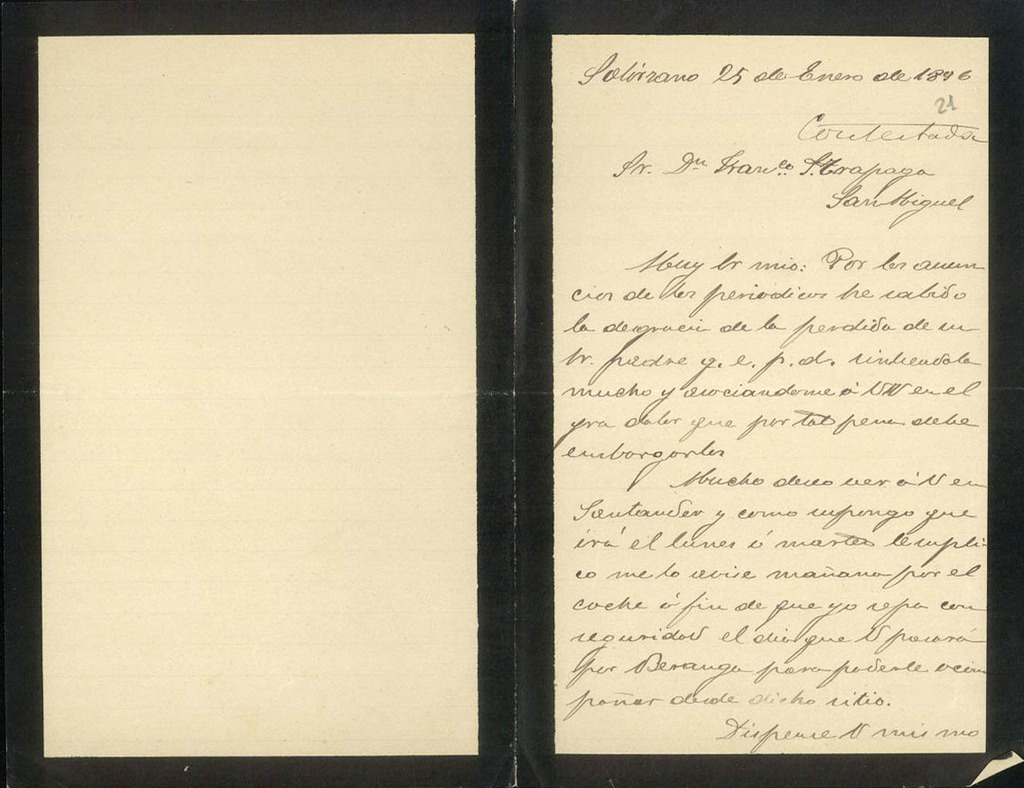 Solórzano 25 de Enero de 1896
21
Contestada
Sr. Dn Franco. S. Trapaga
San Miguel
Muy Sr mio: Por los anun
cios de los periodicos he sabido
la desgracia de la perdida de su
Sr. padre q. e. p. d. sintiendola
mucho y asociandome á VV en el
gra dolor que por tal pena debe
embargarles
Mucho deseo ver á V en
Santander y como supongo que
irá el lunes ó martes le supli-
co me lo avise mañana por el
coche á fin de que yo sepa con
seguridad el dia que V pasará
por Beranga para poderle acom
pañar desde dicho sitio.
Dispense V mis mo